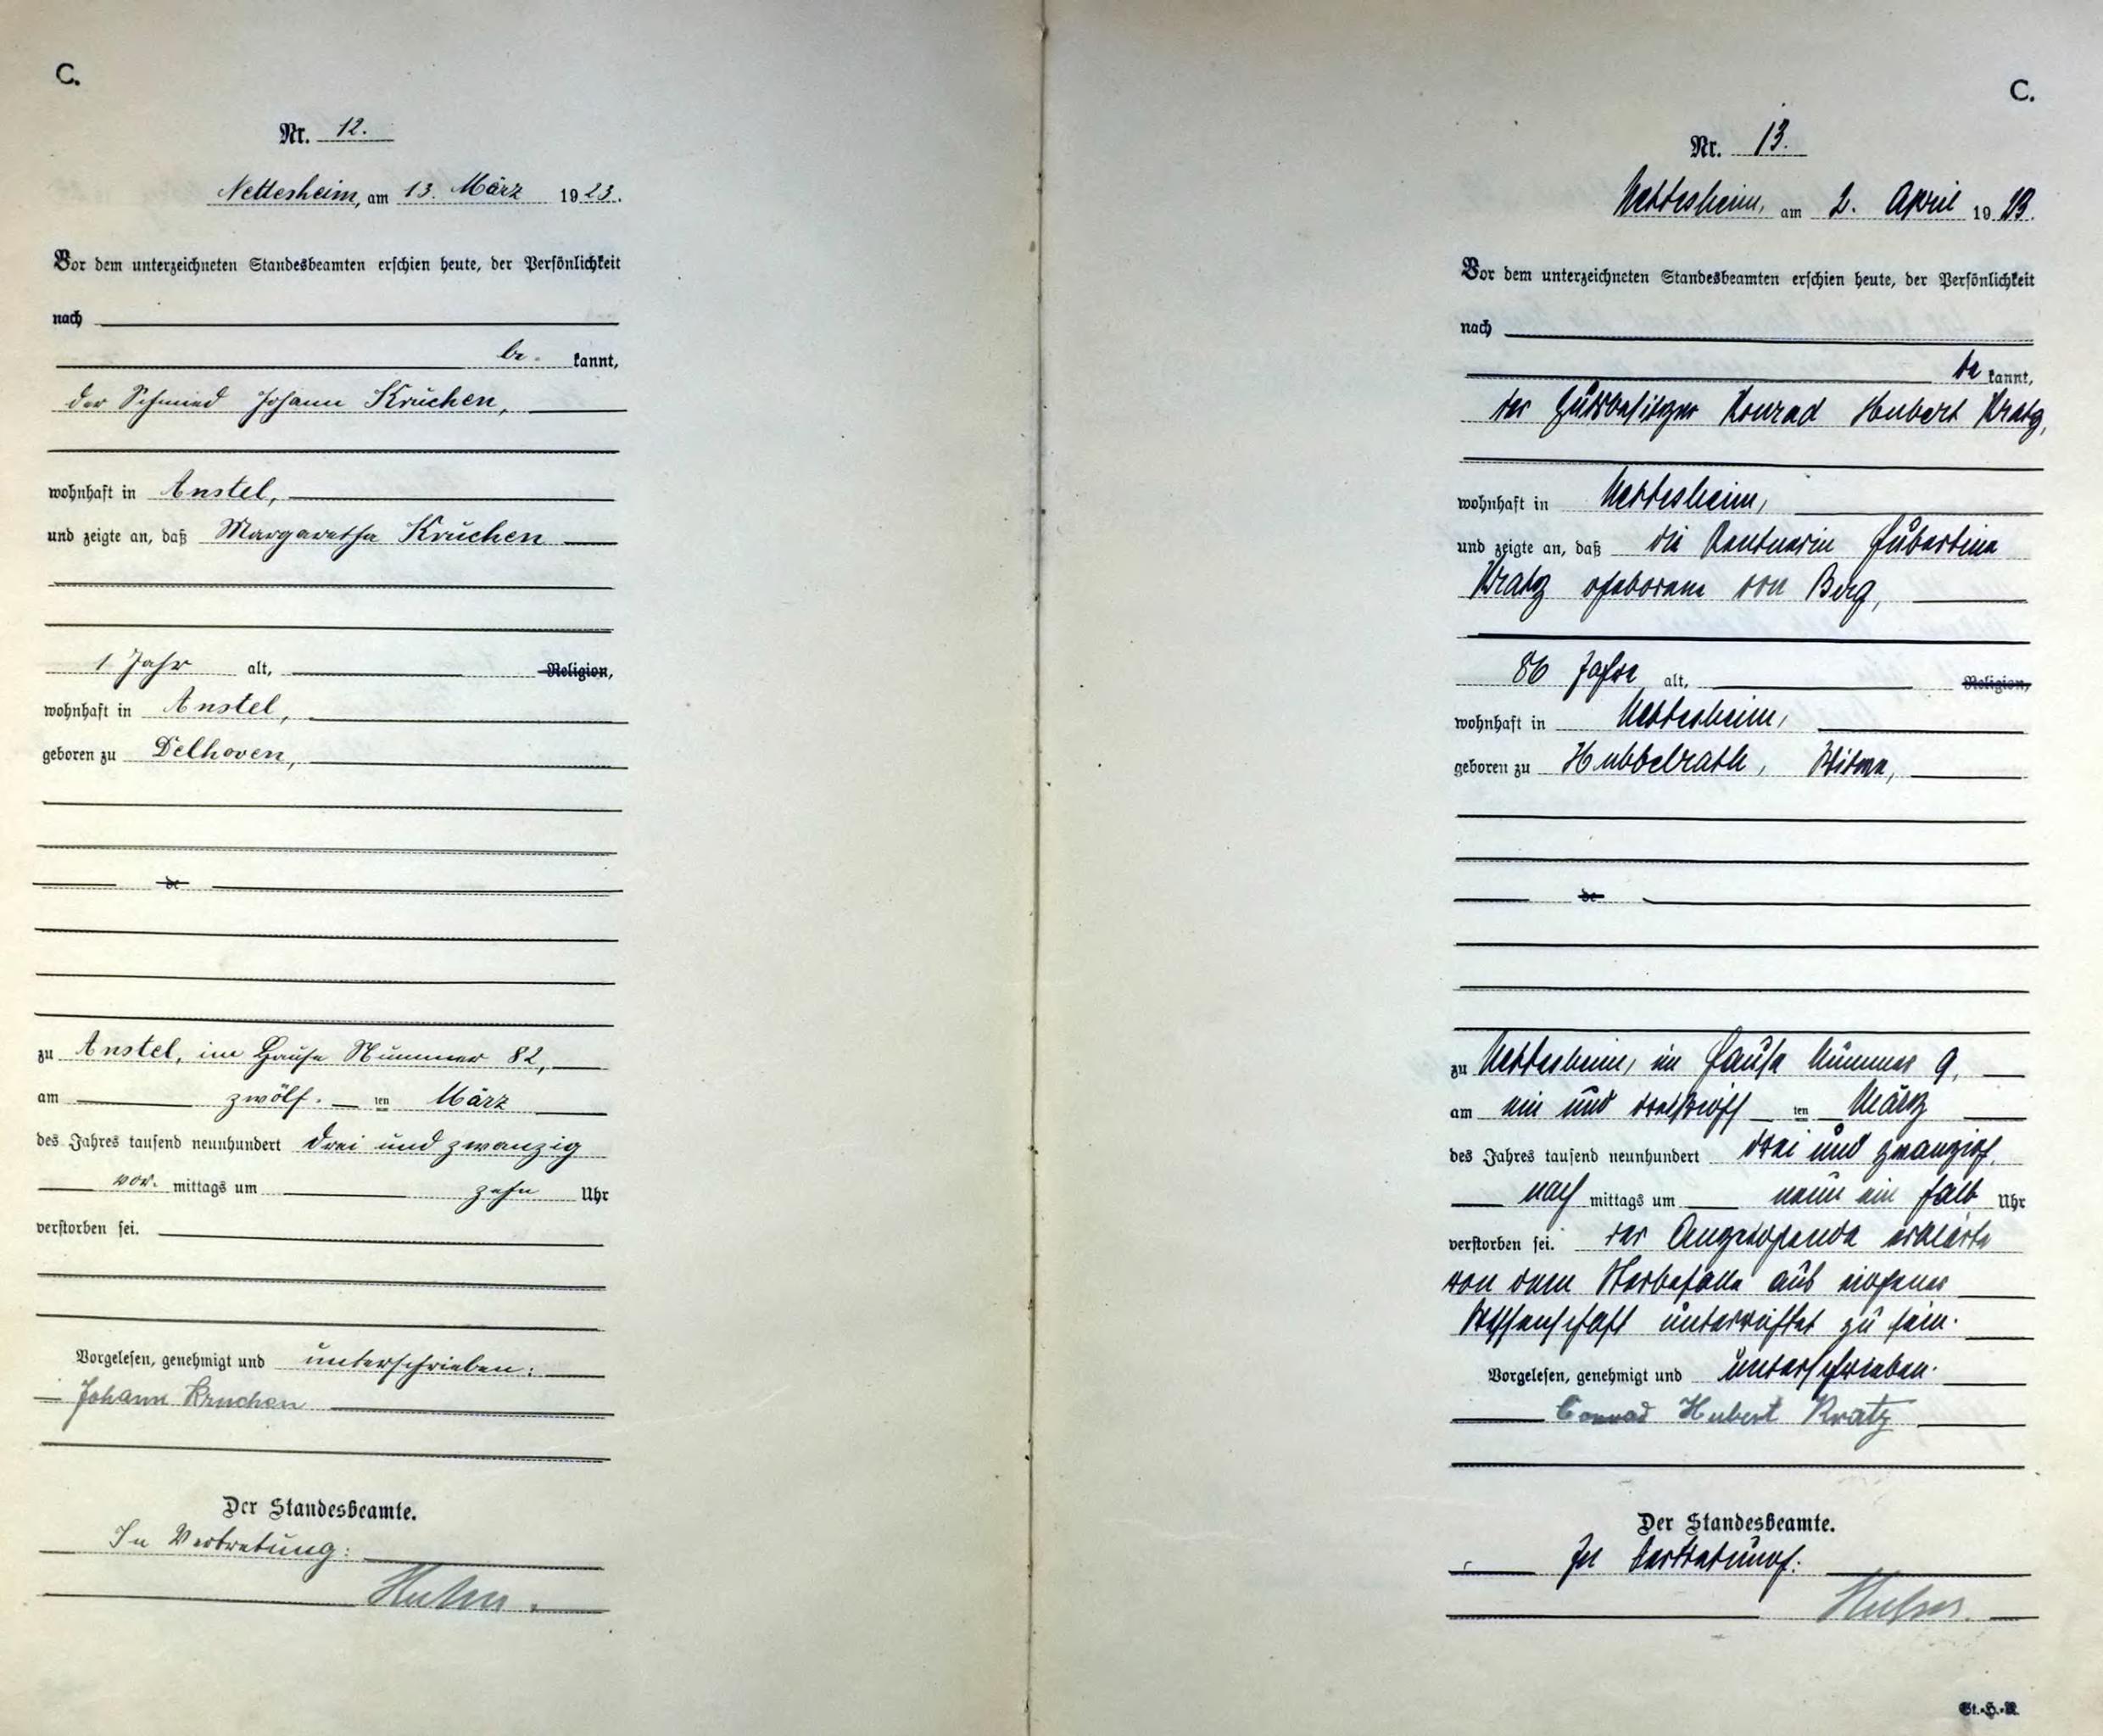 C.
Nr. 12.
Nettesheim, am 13. März 1923.
Vor dem unterzeichneten Standesbeamten erschien heute, der Persönlichkeit
nach
be- kannt,
der Schmied Johann Kruchen,
wohnhaft in Anstel,
und zeigte an, daß Margaretha Kruchen
1 Jahr alt, Religion,
wohnhaft in Anstel,
geboren zu Delhoven,
de
zu Anstel, im Hause Nummer 82,
am zwölf- ten März
des Jahres tausend neunhundert drei und zwanzig
vor- mittags um zehn Uhr
verstorben sei.
Vorgelesen, genehmigt und unterschrieben:
Johann Kruchen
Der Standesbeamte.
In Vertretung:
C.
Nr. 13.
Nettesheim, am 2. April 1923.
Vor dem unterzeichneten Standesbeamten erschien heute, der Persönlichkeit
nach
be kannt,
der Gutsbesitzer Konrad Hubert Kratz,
wohnhaft in Nettesheim,
und zeigte an, daß die Rentnerin Hubertina
Kratz geborene von Berg,
86 Jahre alt, Religion,
wohnhaft in Nettesheim,
geboren zu Hubbelrath, Witwe,
de
zu Nettesheim, im Hause Nummer 9,
am ein und dreißigst ten März
des Jahres tausend neunhundert drei und zwanzig,
nach mittags um neun ein halb Uhr
verstorben sei. Der Anzeigende erklärte
von dem Sterbefalle aus eigener
Wissenschaft unterrichtet zu sein.
Vorgelesen, genehmigt und unterschrieben.
Conrad Hubert Kratz
Der Standesbeamte.
In Vertretung:
St.-H.-R.